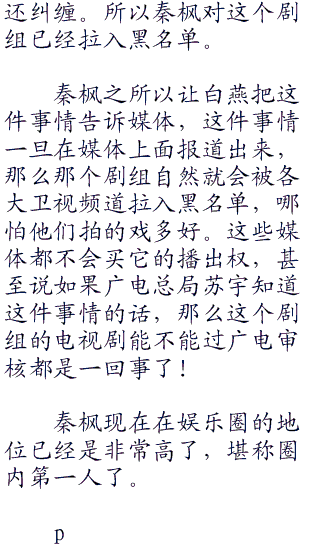 还纠缠。所以秦枫对这个剧
组已经拉入黑名单。
秦枫之所以让白燕把这
件事情告诉媒体，这件事情
一旦在媒体上面报道出来，
那么那个剧组自然就会被各
大卫视频道拉入黑名单，哪
怕他们拍的戏多好。这些媒
体都不会买它的播出权，甚
至说如果广电总局苏宇知道
这件事情的话，那么这个剧
组的电视剧能不能过广电审
核都是一回事了！
秦枫现在在娱乐圈的地
位已经是非常高了，堪称圈
内第一人了。
p